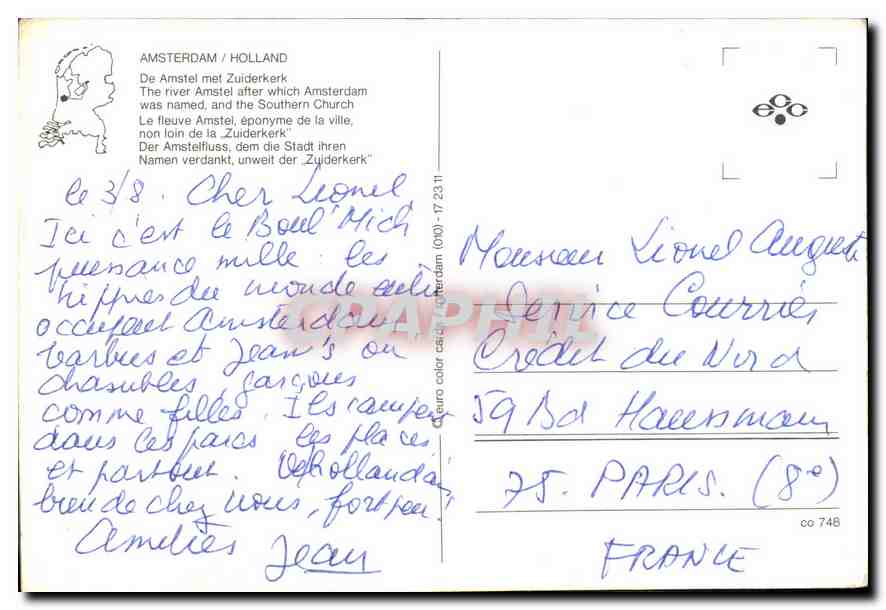 AMSTERDAM / HOLLAND
De Amstel met Zuiderkerk
The river Amstel after which Amsterdam
was named, and the Southern Church
Le fleuve Amstel, éponyme de la ville,
non loin de la „Zuiderkerk"
Der Amstelfluss, dem die Stadt ihren
Namen verdankt, unweit der „Zuiderkerk"
le 3/8. Cher Lionel,
Ici c'est le Boul'Mich
puissance mille : les
hippies du monde entier
occupent Amsterdam
barbus et jean's ou
chasubles, garçons
comme filles. Ils campent
dans les parcs les places
et partout.
bien de chez nous, fort peu!
Amitiés
Jean
© euro color cards Amsterdam (010) - 17 23 11
ecc
Monsieur Lionel Auguste
Service Courrier
Crédit du Nord
59 Bd Haussmann
75. PARIS. (8e)
FRANCE
co 748
CPAPHIL